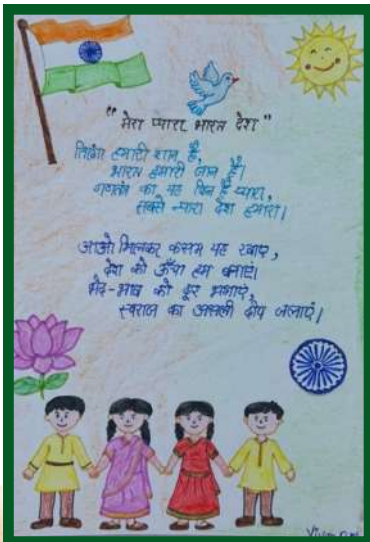 "मेरा प्यारा भारत देश"
तिरंगा हमारी शान है,
भारत हमारी जान है।
गणतंत्र का यह दिन है प्यारा,
सबसे न्यारा देश हमारा।
आओ मिलकर कसम यह खाएं,
देश को ऊँचा हम बनाएं।
भेद-भाव को दूर भगाएं,
स्वराज का असली दीप जलाएं।